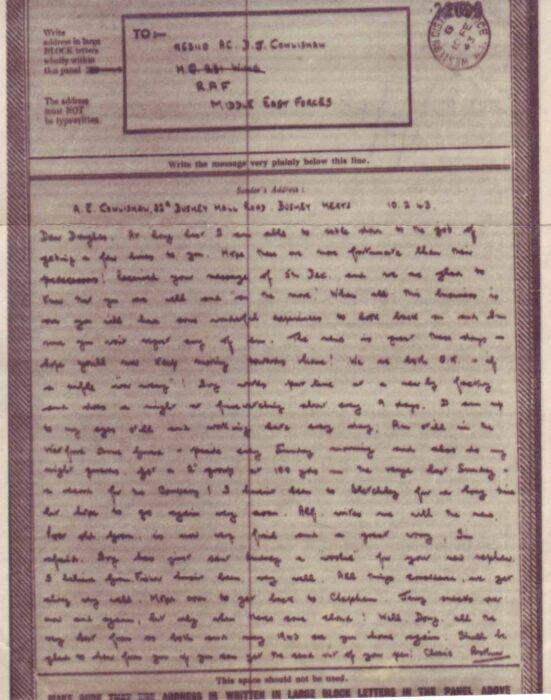 Write
address in large
BLOCK letters
wholly within
this panel
The address
must NOT
be typewritten.
TO :—
AC. D. J. COWLISHAW
R.A.F
MIDDLE EAST FORCES
Write the message very plainly below this line.
Sender's Address :
A. E. COWLISHAW, BUSHEY HALL ROAD. BUSHEY HERTS 10.2.43
Dear Douglas. At long last I am able to settle down to the job of
getting a few lines to you. Hope these are more fortunate than their
predecessors! Received your message of 5th Dec. and we are glad to
know that you are well and "on the move". When all this business is
over you will have some wonderful experiences to look back on and I'm
sure you won't regret any of them. The news is great these days -
hope you'll now keep moving towards home! We are both O.K. - if
a trifle "war weary"! works part time at a near by factory
and does a night of firewatching about every 9 days. I am up
to my eyes still and working late every day. Am still in the
Watford Home Guard - parade every Sunday morning and also do my
night guards. Got a 2" group at 100 yds on the range last Sunday -
a record for the Company! I haven't been to Bletchley for a long time
but hope to go again very soon. Alf writes me with the news.
Poor old is now very frail and a great worry, I'm
afraid. has just sent for your new nephew.
I believe haven't been very well. All things considered, we get
along very well. Hope soon to get back to Clapham. needs
now and again, but only when there's some about! Well, Doug, all the
very best from us both and may 1943 see you home again. Shall be
glad to hear from you if you can get the sand out of your pen! Cheerio
This space should not be used.
MAKE SURE THAT THE ADDRESS IS WRITTEN IN LARGE BLOCK LETTERS IN THE PANEL ABOVE